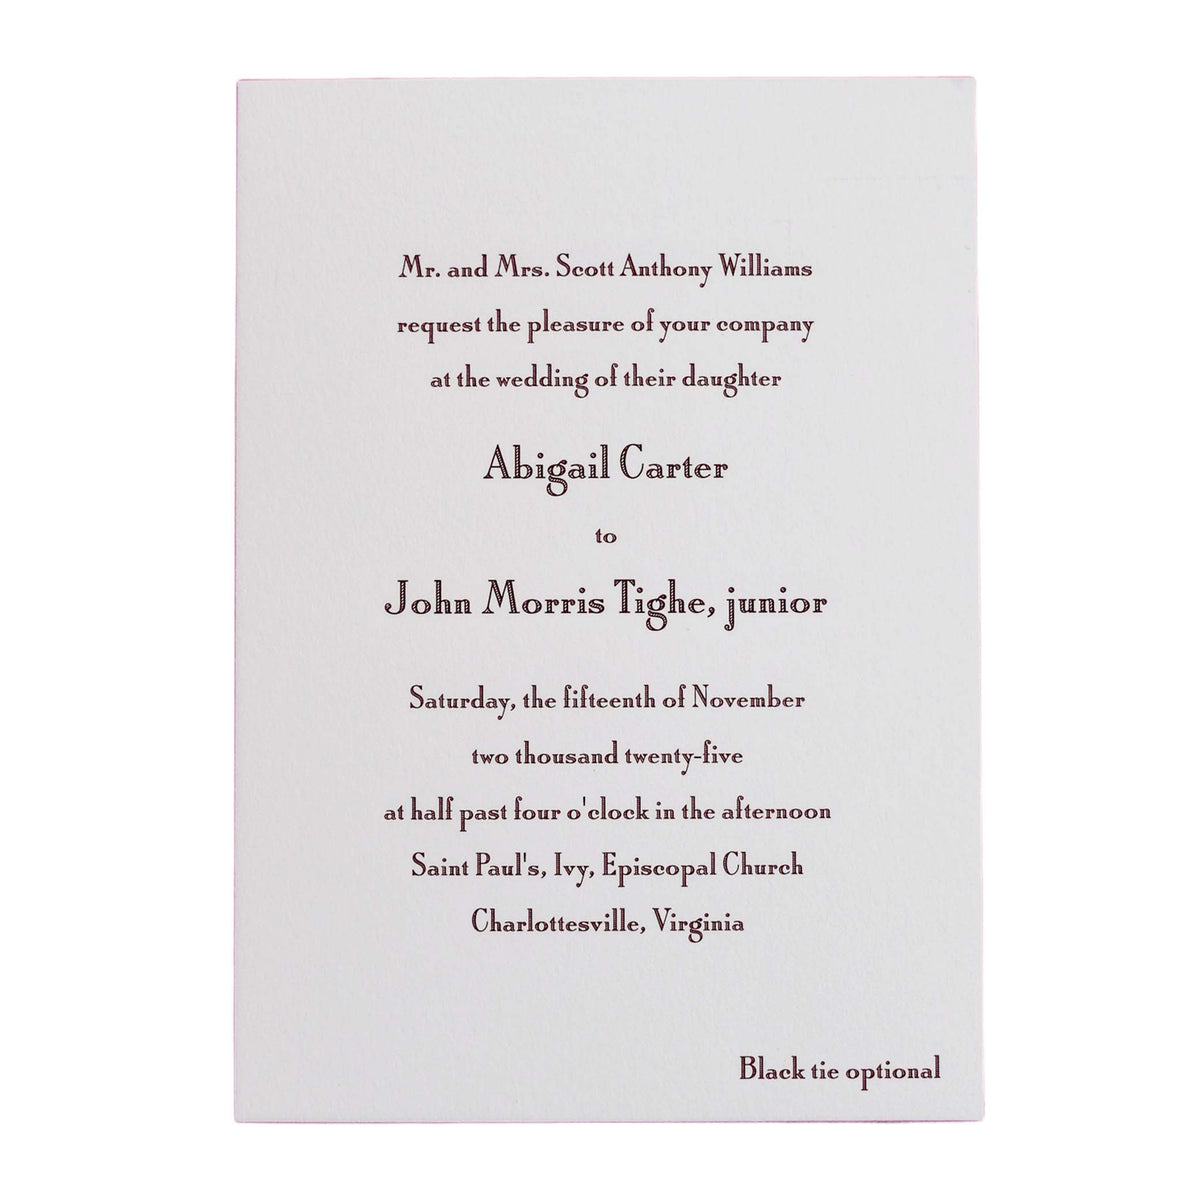 Mr. and Mrs. Scott Anthony Williams
request the pleasure of your company
at the wedding of their daughter
Abigail Carter
to
John Morris Tighe, junior
Saturday, the fifteenth of November
two thousand twenty-five
at half past four o'clock in the afternoon
Saint Paul's, Ivy, Episcopal Church
Charlottesville, Virginia
Black tie optional